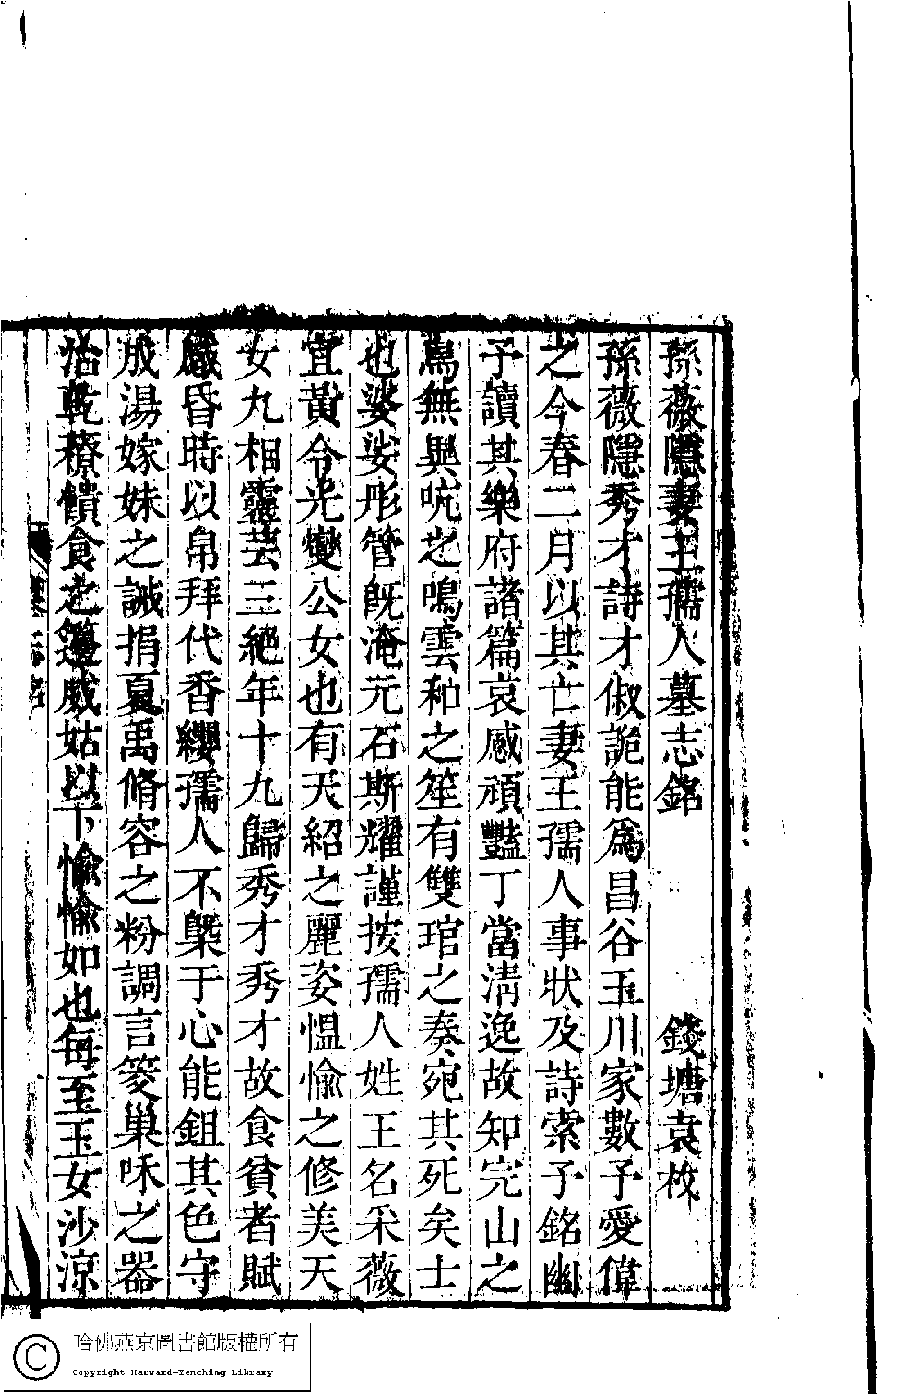 孫薇隱妻王孺人墓志銘 錢塘袁枚
孫薇隱秀才詩才俶詭能爲昌谷玉川家數予愛偉
之今春二月以其亡妻王孺人事狀及詩索予銘幽
予讀其樂府諸篇哀感頑豔丁當清逸故知完山之
鳥無與吭之鳴雲和之笙有雙琯之奏宛其死矣士
也婆娑彤管旣淹元石斯耀謹按孺人姓王名采薇
宜黃令光燮公女也有天紹之麗姿慍愉之修美天
女九相靈芸三絕年十九歸秀才秀才故食貧者賦
昏時以帛拜代香纓孺人不槩于心能鉏其色守
成湯嫁妹之誡捐夏禹脩容之粉調言笑巢咊之器
沽乾䊩饋食之籩威姑以下愉愉如也每至玉女沙涼
墓志銘
哈佛燕京圖書館版權所有
Copyright Harvard-Yenching Library